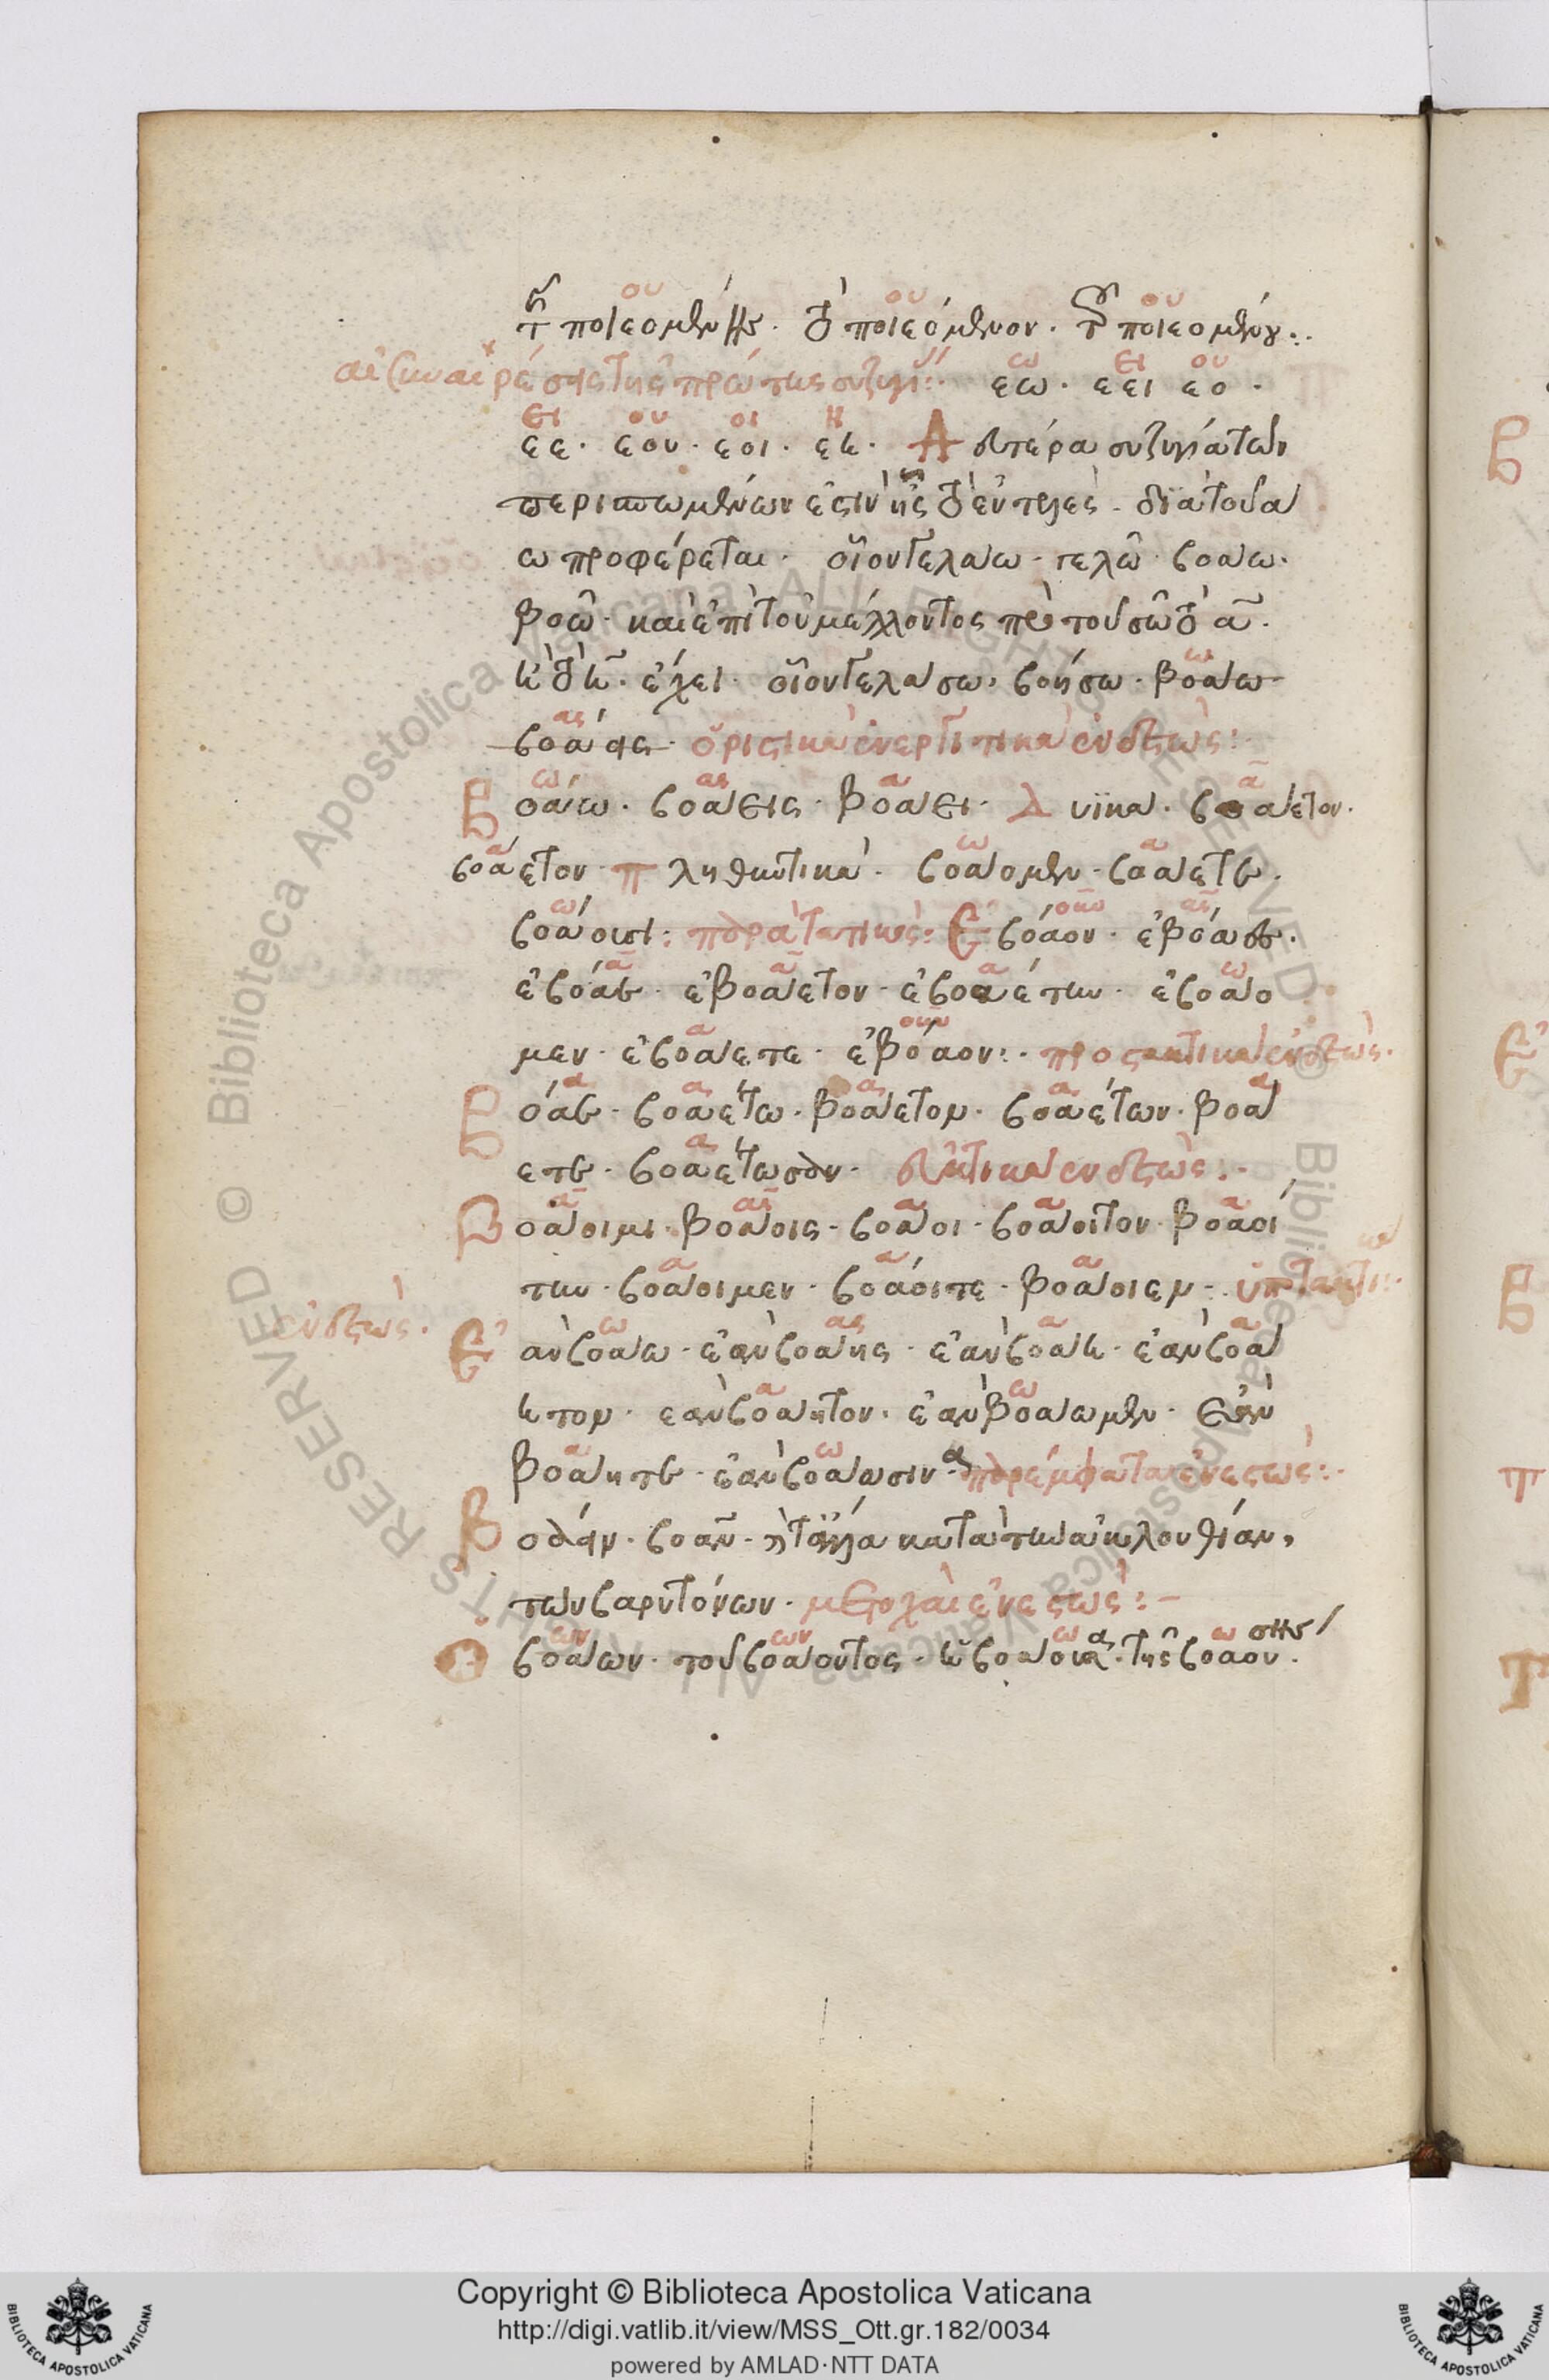 τῆς ποιεομένης · τὸ ποιεόμενον · τοῦ ποιεομένου :.
αἱ συναιρέσεις τῆς πρώτης συζυγί :· εω · εει εο ·
εε · εου · εοι · εη · Δευτέρα συζυγία τῶν
περισπωμένων ἐστὶν ἧς τὸ ἐντελὲς · διὰ τοῦ α
ω προφέρεται · οἷον γελάω · γελῶ · βοάω ·
βοῶ · καὶ ἐπὶ τοῦ μέλλοντος πρὸ τοῦ σω τὸ α ·
ἢ τὸ η · ἔχει · οἷον γελάσω · βοήσω · βοάω
βοάεις · ὁριστικὰ ἐνεργητικὰ ἐνεστῶς :
Βοάω · βοάεις · βοάει · Δυϊκά · βοάετον ·
βοάετον · πληθυντικά · βοάομεν · βοάετε ·
βοάουσι : παρατατικός : Ἐβόαον · ἐβόαες ·
ἐβόαε · ἐβοάετον · ἐβοαέτην · ἐβοάο
μεν · ἐβοάετε · ἐβόαον :· προστακτικὰ ἐνεστῶς ·
Βόαε · βοαέτω · βοάετον · βοαέτων · βοά
ετε · βοαέτωσαν · εὐκτικὰ ἐνεστῶς : ·
Βοάοιμι · βοάοις · βοάοι · βοάοιτον · βοαοί
την · βοάοιμεν · βοάοιτε · βοάοιεν · ὑποτακτικὰ :·
ἐνεστῶς ·
Ἐὰν βοάω · ἐὰν βοάης · ἐὰν βοάη · ἐὰν βοά
ητον · ἐὰν βοάητον · ἐὰν βοάωμεν · ἐὰν
βοάητε · ἐὰν βοάωσιν · ἀπαρέμφατα ἐνεστώς :·
Βοάειν · βοᾶν · καὶ τἄλλα κατὰ τὴν ἀκολουθίαν,
τῶν βαρυτόνων · μετοχαὶ ἐνεστώς : –
Ὁ βοάων · τοῦ βοάοντος · ἡ βοάουσα · τῆς βοαούσης ·
Copyright © Biblioteca Apostolica Vaticana
http://digi.vatlib.it/view/MSS_Ott.gr.182/0034
powered by AMLAD·NTT DATA